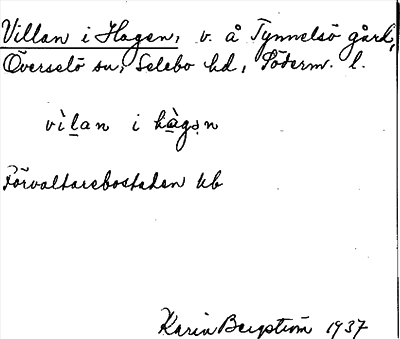 Villan i Hagen, v. å Tynnelsö gård,
Överselö sn, Selebo hd, Söderm. l.
vìl̠an i hà̠gən
Förvaltarebostaden kb
Karin Bergström 1937